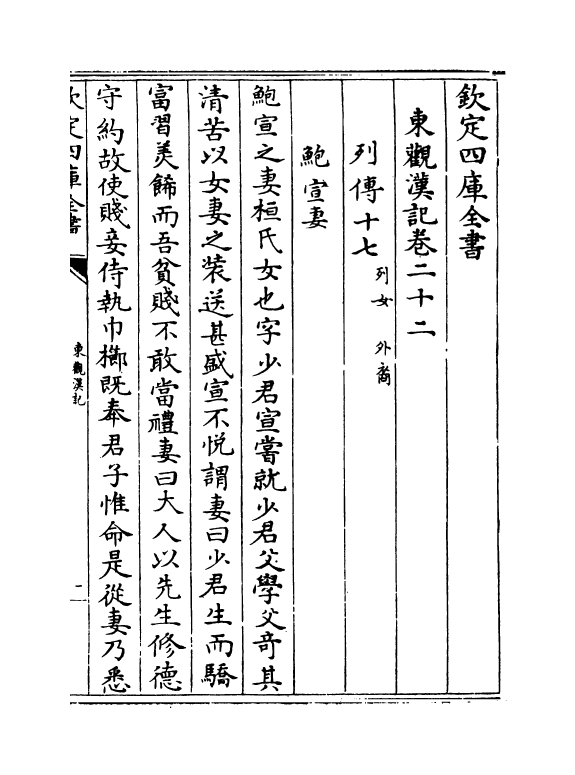 欽定四庫全書
東觀漢記卷二十二
列傳十七
列女　外裔
鮑宣妻
鮑宣之妻桓氏女也字少君宣嘗就少君父學父奇其
清苦以女妻之裝送甚盛宣不悅謂妻曰少君生而驕
富習美餙而吾貧賤不敢當禮妻曰大人以先生修德
守約故使賤妾侍執巾櫛既奉君子惟命是從妻乃悉
欽定四庫全書
東觀漢記